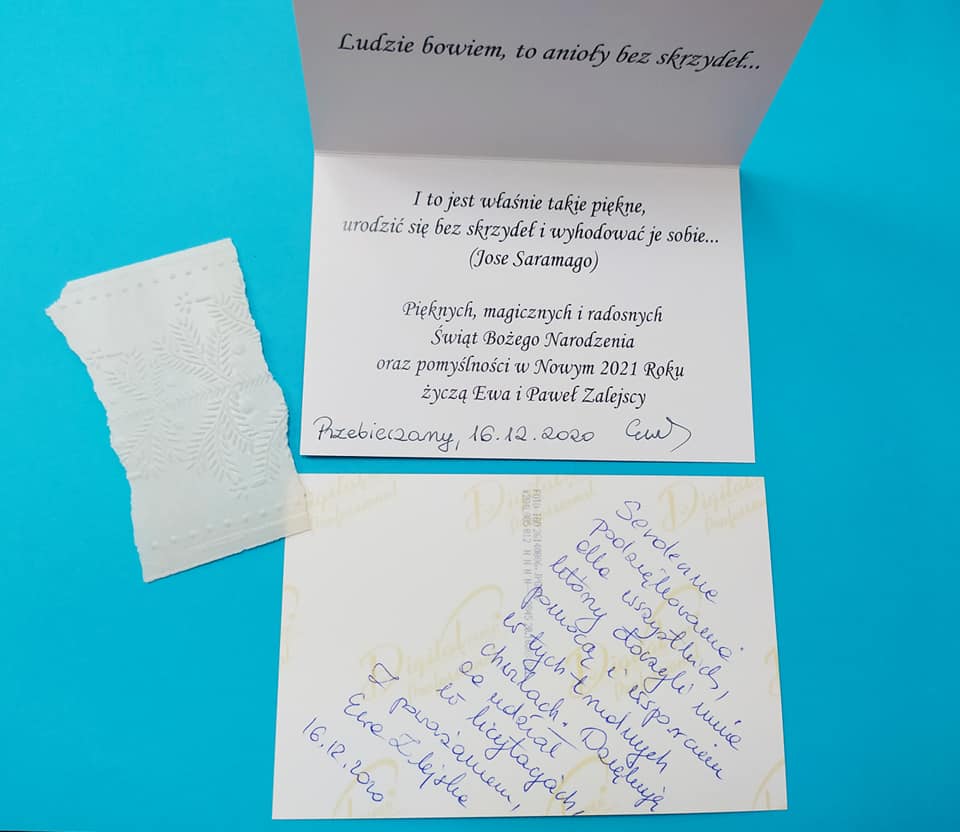 Ludzie bowiem, to anioły bez skrzydeł...
I to jest właśnie takie piękne,
urodzić się bez skrzydeł i wyhodować je sobie...
(Jose Saramago)
Pięknych, magicznych i radosnych
Świąt Bożego Narodzenia
oraz pomyślności w Nowym 2021 Roku
życzą Ewa i Paweł Zalejscy
Przebieczany, 16.12.2020
Serdeczne
podziękowania
dla wszystkich,
którzy darzyli mnie
pomocą i wsparciem
w tych trudnych
chwilach. Dziękuję
za udział
w licytacjach,
Z poważaniem,
Ewa Zalejska
16.12.2020